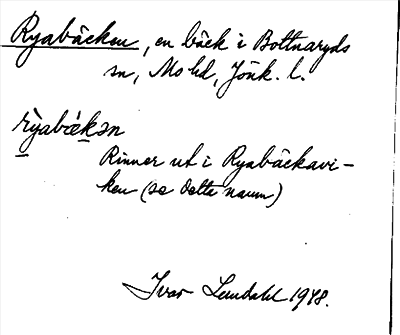 Ryabäcken, en bäck i Bottnaryds
sn, Mo hd, Jönk. l.
ryabäkən
Rinner ut i Ryabäckavi-
ken (se detta namn)
Ivar Lundahl 1948.